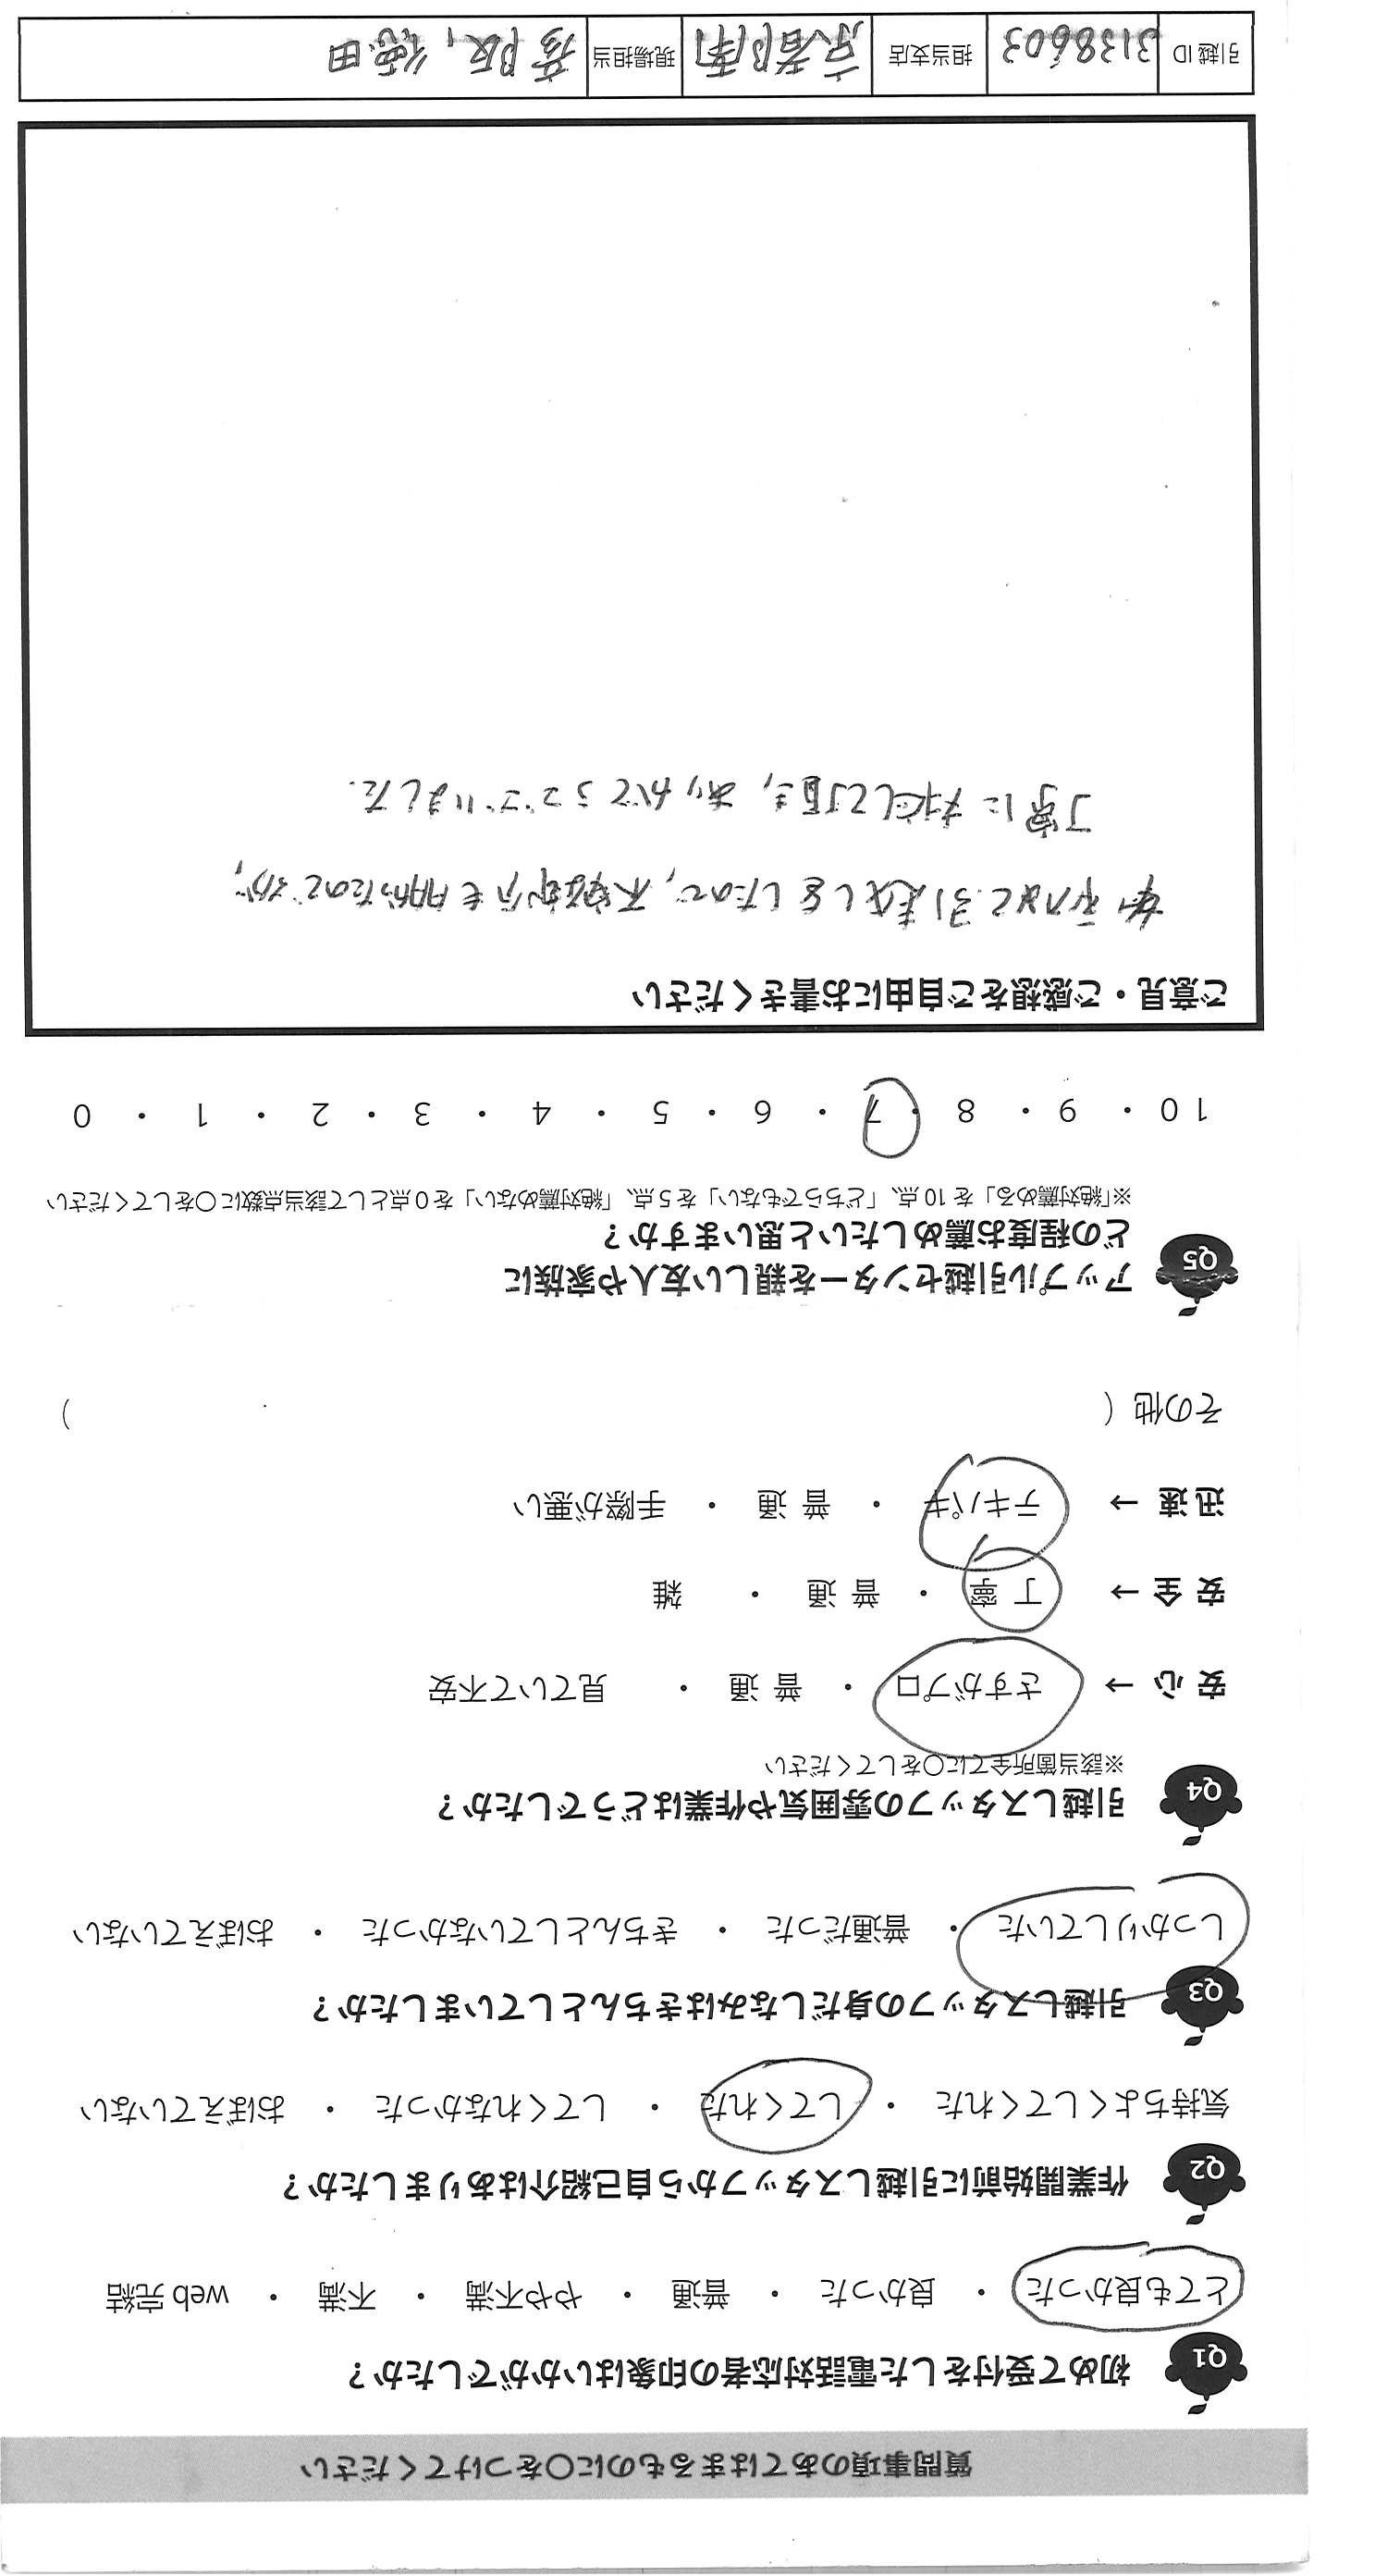 質問事項のあてはまるものに○をつけてください
Q1 初めて受付をした電話対応者の印象はいかがでしたか？
とても良かった ・ 良かった ・ 普通 ・ やや不満 ・ 不満 ・ web完結
Q2 作業開始前に引越しスタッフから自己紹介はありましたか？
気持ちよくしてくれた ・ してくれた ・ してくれなかった ・ おぼえていない
Q3 引越しスタッフの身だしなみはきちんとしていましたか？
しっかりしていた ・ 普通だった ・ きちんとしていなかった ・ おぼえていない
Q4 引越しスタッフの雰囲気や作業はどうでしたか？
※該当箇所全てに○をしてください
安心 → さすがプロ ・ 普通 ・ 見ていて不安
安全 → 丁寧 ・ 普通 ・ 雑
迅速 → テキパキ ・ 普通 ・ 手際が悪い
その他（ ）
Q5 アップル引越センターを親しい友人や家族に
どの程度お薦めしたいと思いますか？
※「絶対薦める」を10点、「どちらでもない」を5点、「絶対薦めない」を0点として該当点数に○をしてください
10 ・ 9 ・ 8 ・ 7 ・ 6 ・ 5 ・ 4 ・ 3 ・ 2 ・ 1 ・ 0
ご意見・ご感想をご自由にお書きください
引越しをしたので、不安な部分も多かったのですが、
丁寧に対応して頂き、ありがとうございました.
引越ID 3138603 担当支店 京都南 現場担当 徳田